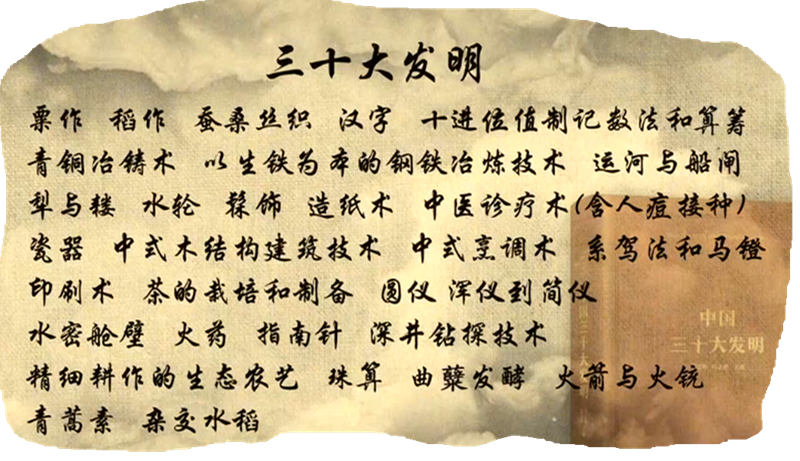 三十大发明
粟作 稻作 蚕桑丝织 汉字 十进位值制记数法和算筹
青铜冶铸术 以生铁为本的钢铁冶炼技术 运河与船闸
犁与耧 水轮 髹饰 造纸术 中医诊疗术(含人痘接种)
瓷器 中式木结构建筑技术 中式烹调术 系驾法和马镫
印刷术 茶的栽培和制备 圆仪 浑仪到简仪
水密舱壁 火药 指南针 深井钻探技术
精细耕作的生态农艺 珠算 曲蘖发酵 火箭与火铳
青蒿素 杂交水稻
中国
三十大发明